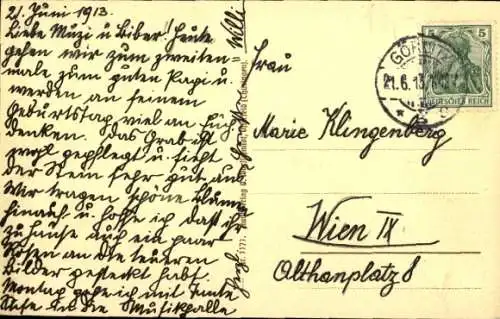 21. Juni 1913.
Liebe Muzi u. Biber! Heute
gehen wir zum zweiten-
male zum guten Papi u.
werden an seinem
Geburtstag viel an Euch
denken. Das Grab ist
wohl gepflegt u. sieht
der Stein sehr gut aus
Wir tragen schöne Blumen
hinauf u. hoffe ich dass ihr
zuhause auch ein paar
Rosen an die teueren
Bilder gesteckt habt.
Montag gehe ich mit Tante
in die Musikhalle
Willi
Frau
Marie Klingenberg
Wien IX
Althanplatz 8
GÖRLITZ
21.6.13
5 5
DEUTSCHES REICH